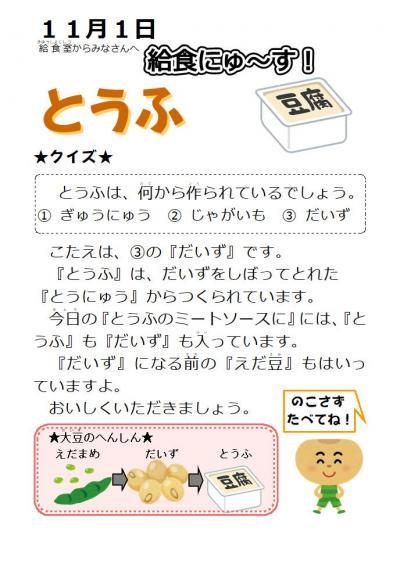 11月1日
給食室からみなさんへ
給食にゅ～す！
とうふ
豆腐
★クイズ★
とうふは、何から作られているでしょう。
① ぎゅうにゅう ② じゃがいも ③ だいず
こたえは、③の『だいず』です。
『とうふ』は、だいずをしぼってとれた
『とうにゅう』からつくられています。
今日の『とうふのミートソースに』には、『と
うふ』も『だいず』も入っています。
『だいず』になる前の『えだ豆』もはいっ
ていますよ。
おいしくいただきましょう。
のこさず
たべてね！
★大豆のへんしん★
えだまめ だいず とうふ
豆腐